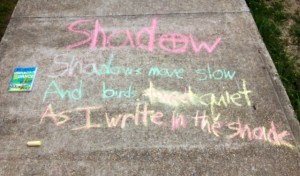 Shadow
Shadows move slow
And birds tweet quiet
As I write in the shade